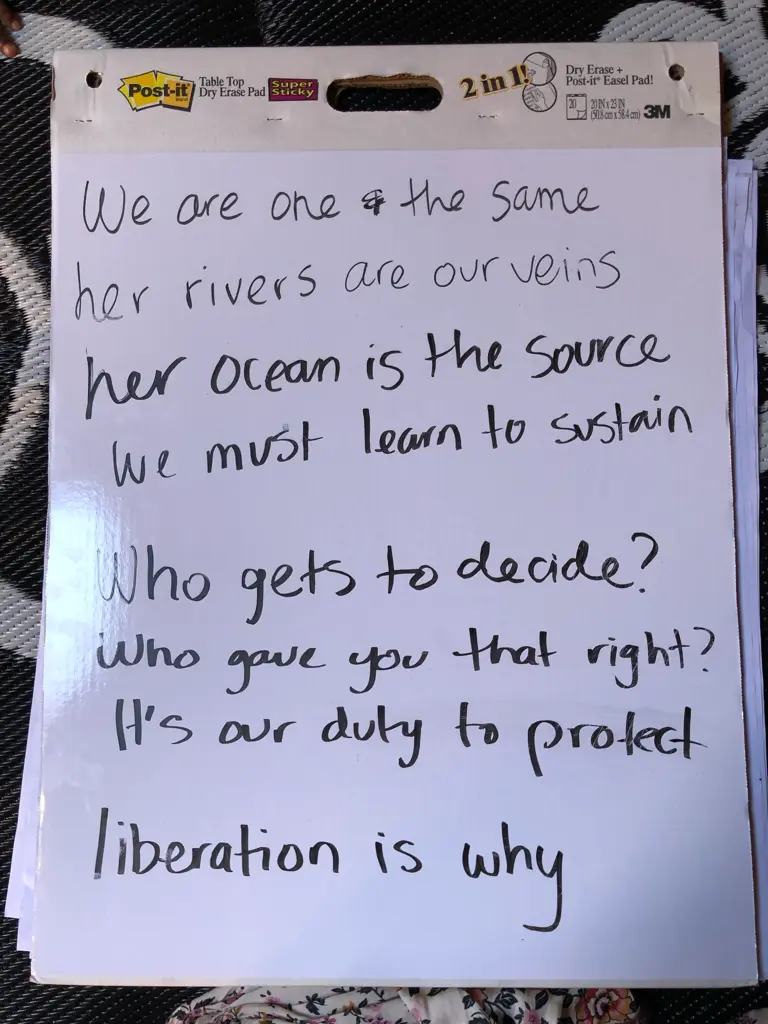 Post-it
Table Top
Dry Erase Pad
Super
Sticky
2 in 1!
Dry Erase +
Post-it® Easel Pad!
20
20 IN x 23 IN
(50.8 cm x 58.4 cm)
3M
We are one & the same
her rivers are our veins
her ocean is the source
we must learn to sustain
Who gets to decide?
Who gave you that right?
It's our duty to protect
liberation is why